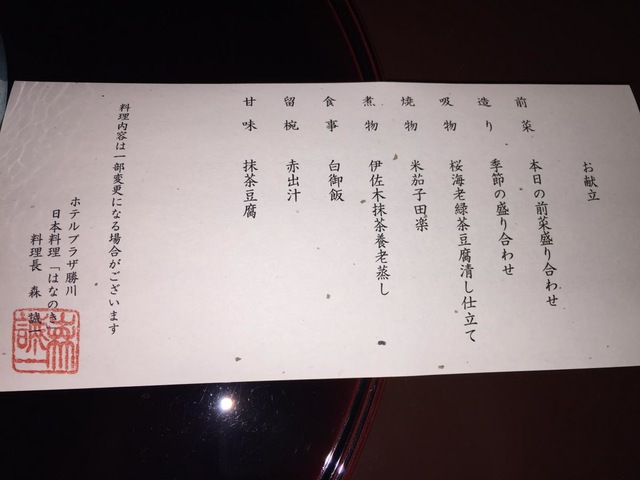 お献立
前菜 本日の前菜盛り合わせ
造り 季節の盛り合わせ
吸物 桜海老緑茶豆腐清し仕立て
焼物 米茄子田楽
煮物 伊佐木抹茶養老蒸し
食事 白御飯
留椀 赤出汁
甘味 抹茶豆腐
料理内容は一部変更になる場合がございます
ホテルプラザ勝川
日本料理「はなのき」
料理長 森 誠一
森誠一